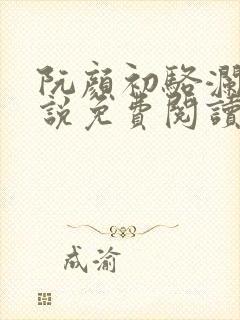 阮顏初駱瀾
說免費閱讀
成渝